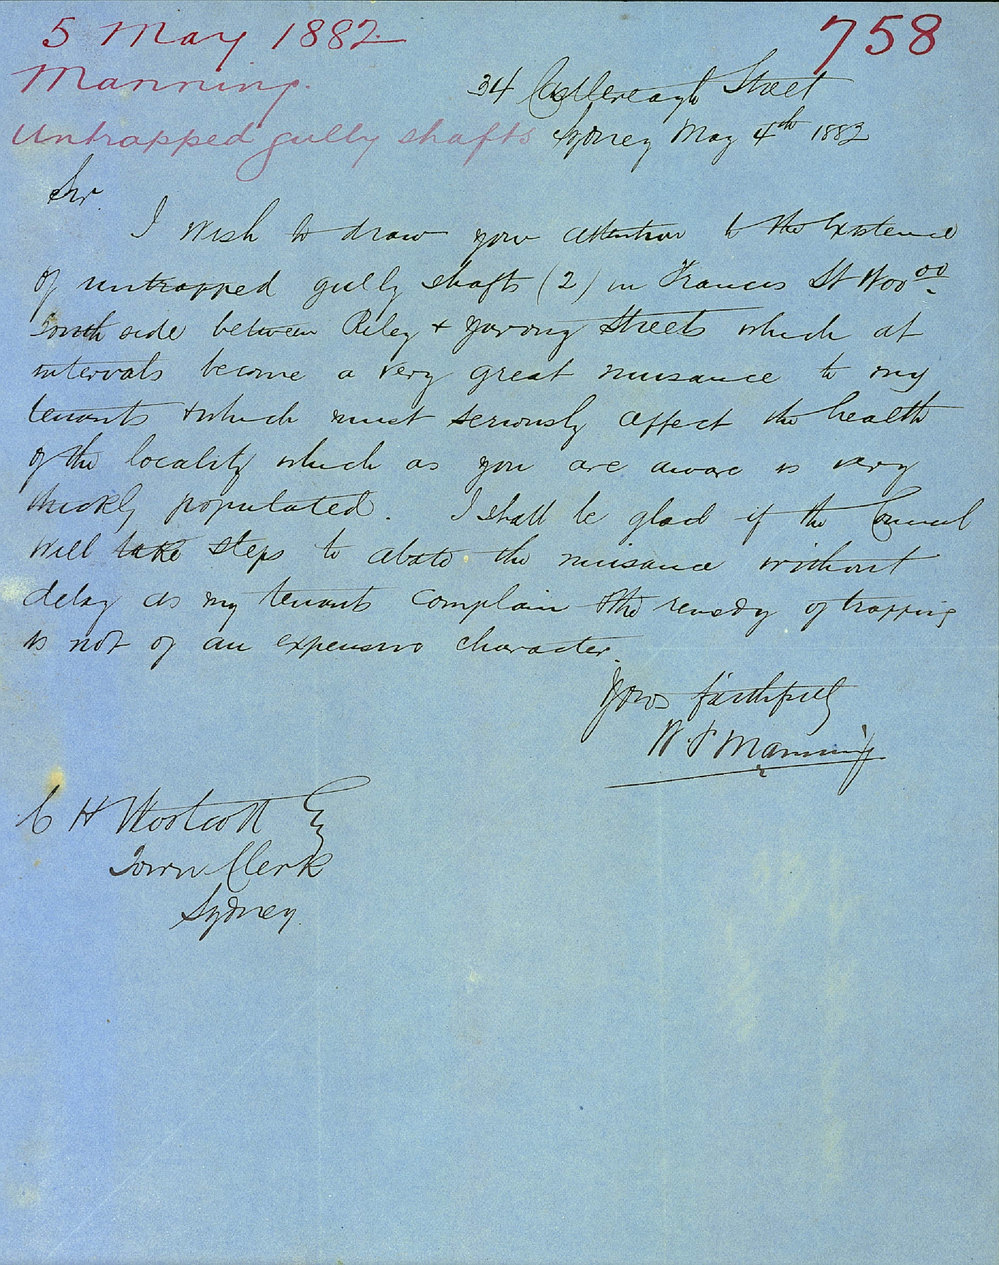 5 May 1882.
758
Manning.
34 Castlereagh Street
Untrapped gully shafts
Sydney May 4th 1882
Sir.
I wish to draw your attention to the existence
of untrapped gully shafts (2) in Francis St Woooo
South side between Riley + Yurong Streets which at
intervals become a very great nuisance to my
tenants + which must seriously affect the health
of the locality which as you are aware is very
thickly populated. I shall be glad if the Council
will take steps to abate the nuisance without
delay as my tenants complain + the remedy of trapping
is not of an expensive character.
Yours faithfully
W. P Manning
C H Woolcott Esq
Town Clerk
Sydney.